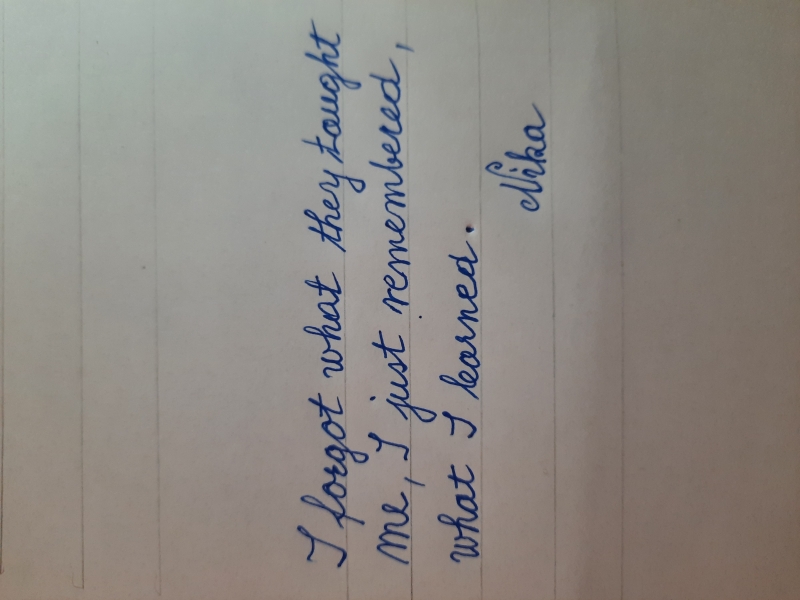 I forgot what they tought
me, I just remembered,
what I learned.
Nika